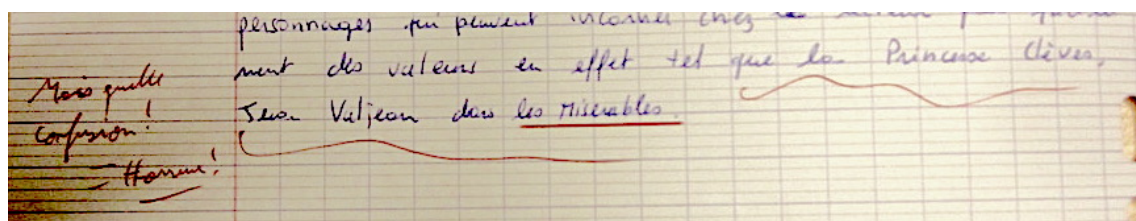 personnages qui peuvent incarner chez le lecteur
ment des valeurs en effet tel que la Princesse Clèves,
Jean Valjean dans les Misérables.
Mais quelle
confusion!
Horreur!